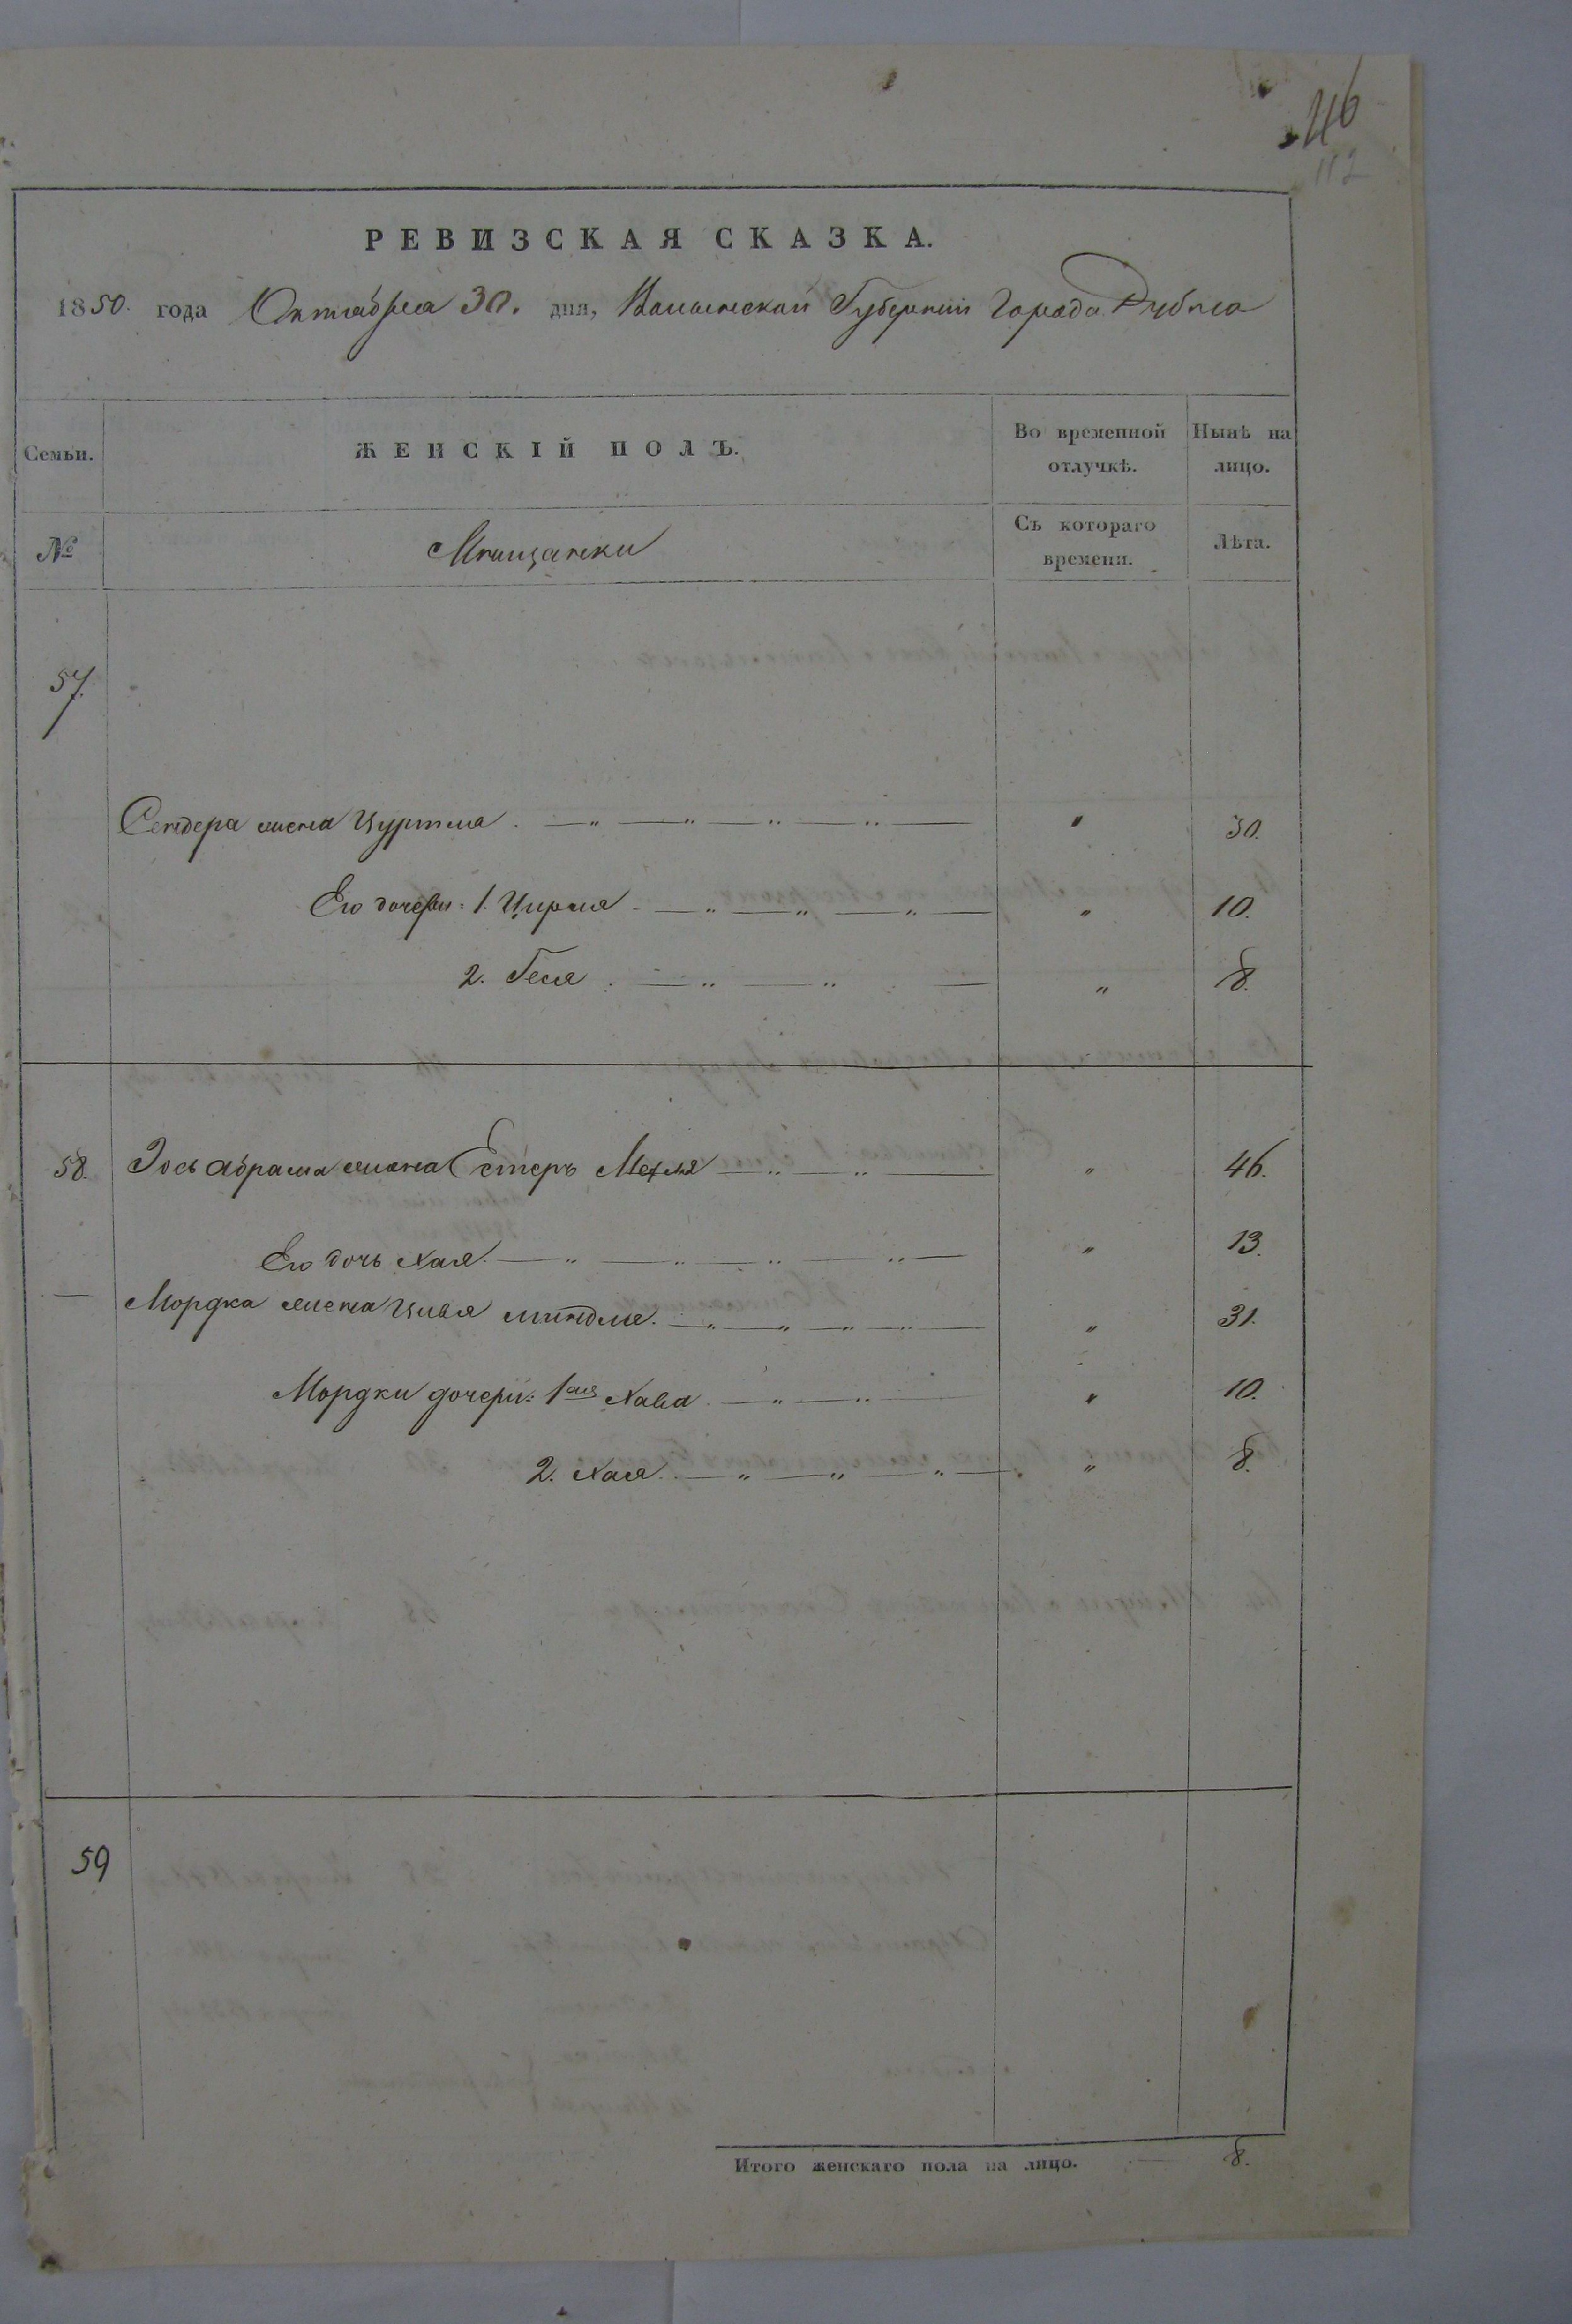 46
112
РЕВИЗСКАЯ СКАЗКА.
1850. года Октября 30. дня, Волынской Губернии Города Дубна
Семьи. ЖЕНСКІЙ ПОЛЪ. Во временной отлучкѣ. Нынѣ на лицо.
№ Мѣщанки Съ котораго времени. Лѣта.
57.
Сендера жена Цуртля . — „ — „ — „ — „ — „ 30.
Его дочери: 1. Цирля — „ — „ — „ — „ 10.
2. Геля . — „ — „ — „ 8.
58. Зось Абрама жена Естеръ Мехля — „ — „ — „ 46.
Его дочь Хая. — „ — „ — „ — „ — „ 13.
— Мордка жена Цивя Миндля. — „ — „ — „ — „ — „ 31.
Мордки дочери: 1ая Хава . — „ — „ — „ 10.
2. Хая. — „ — „ — „ — „ 8.
59
Итого женскаго пола на лицо. — 8.